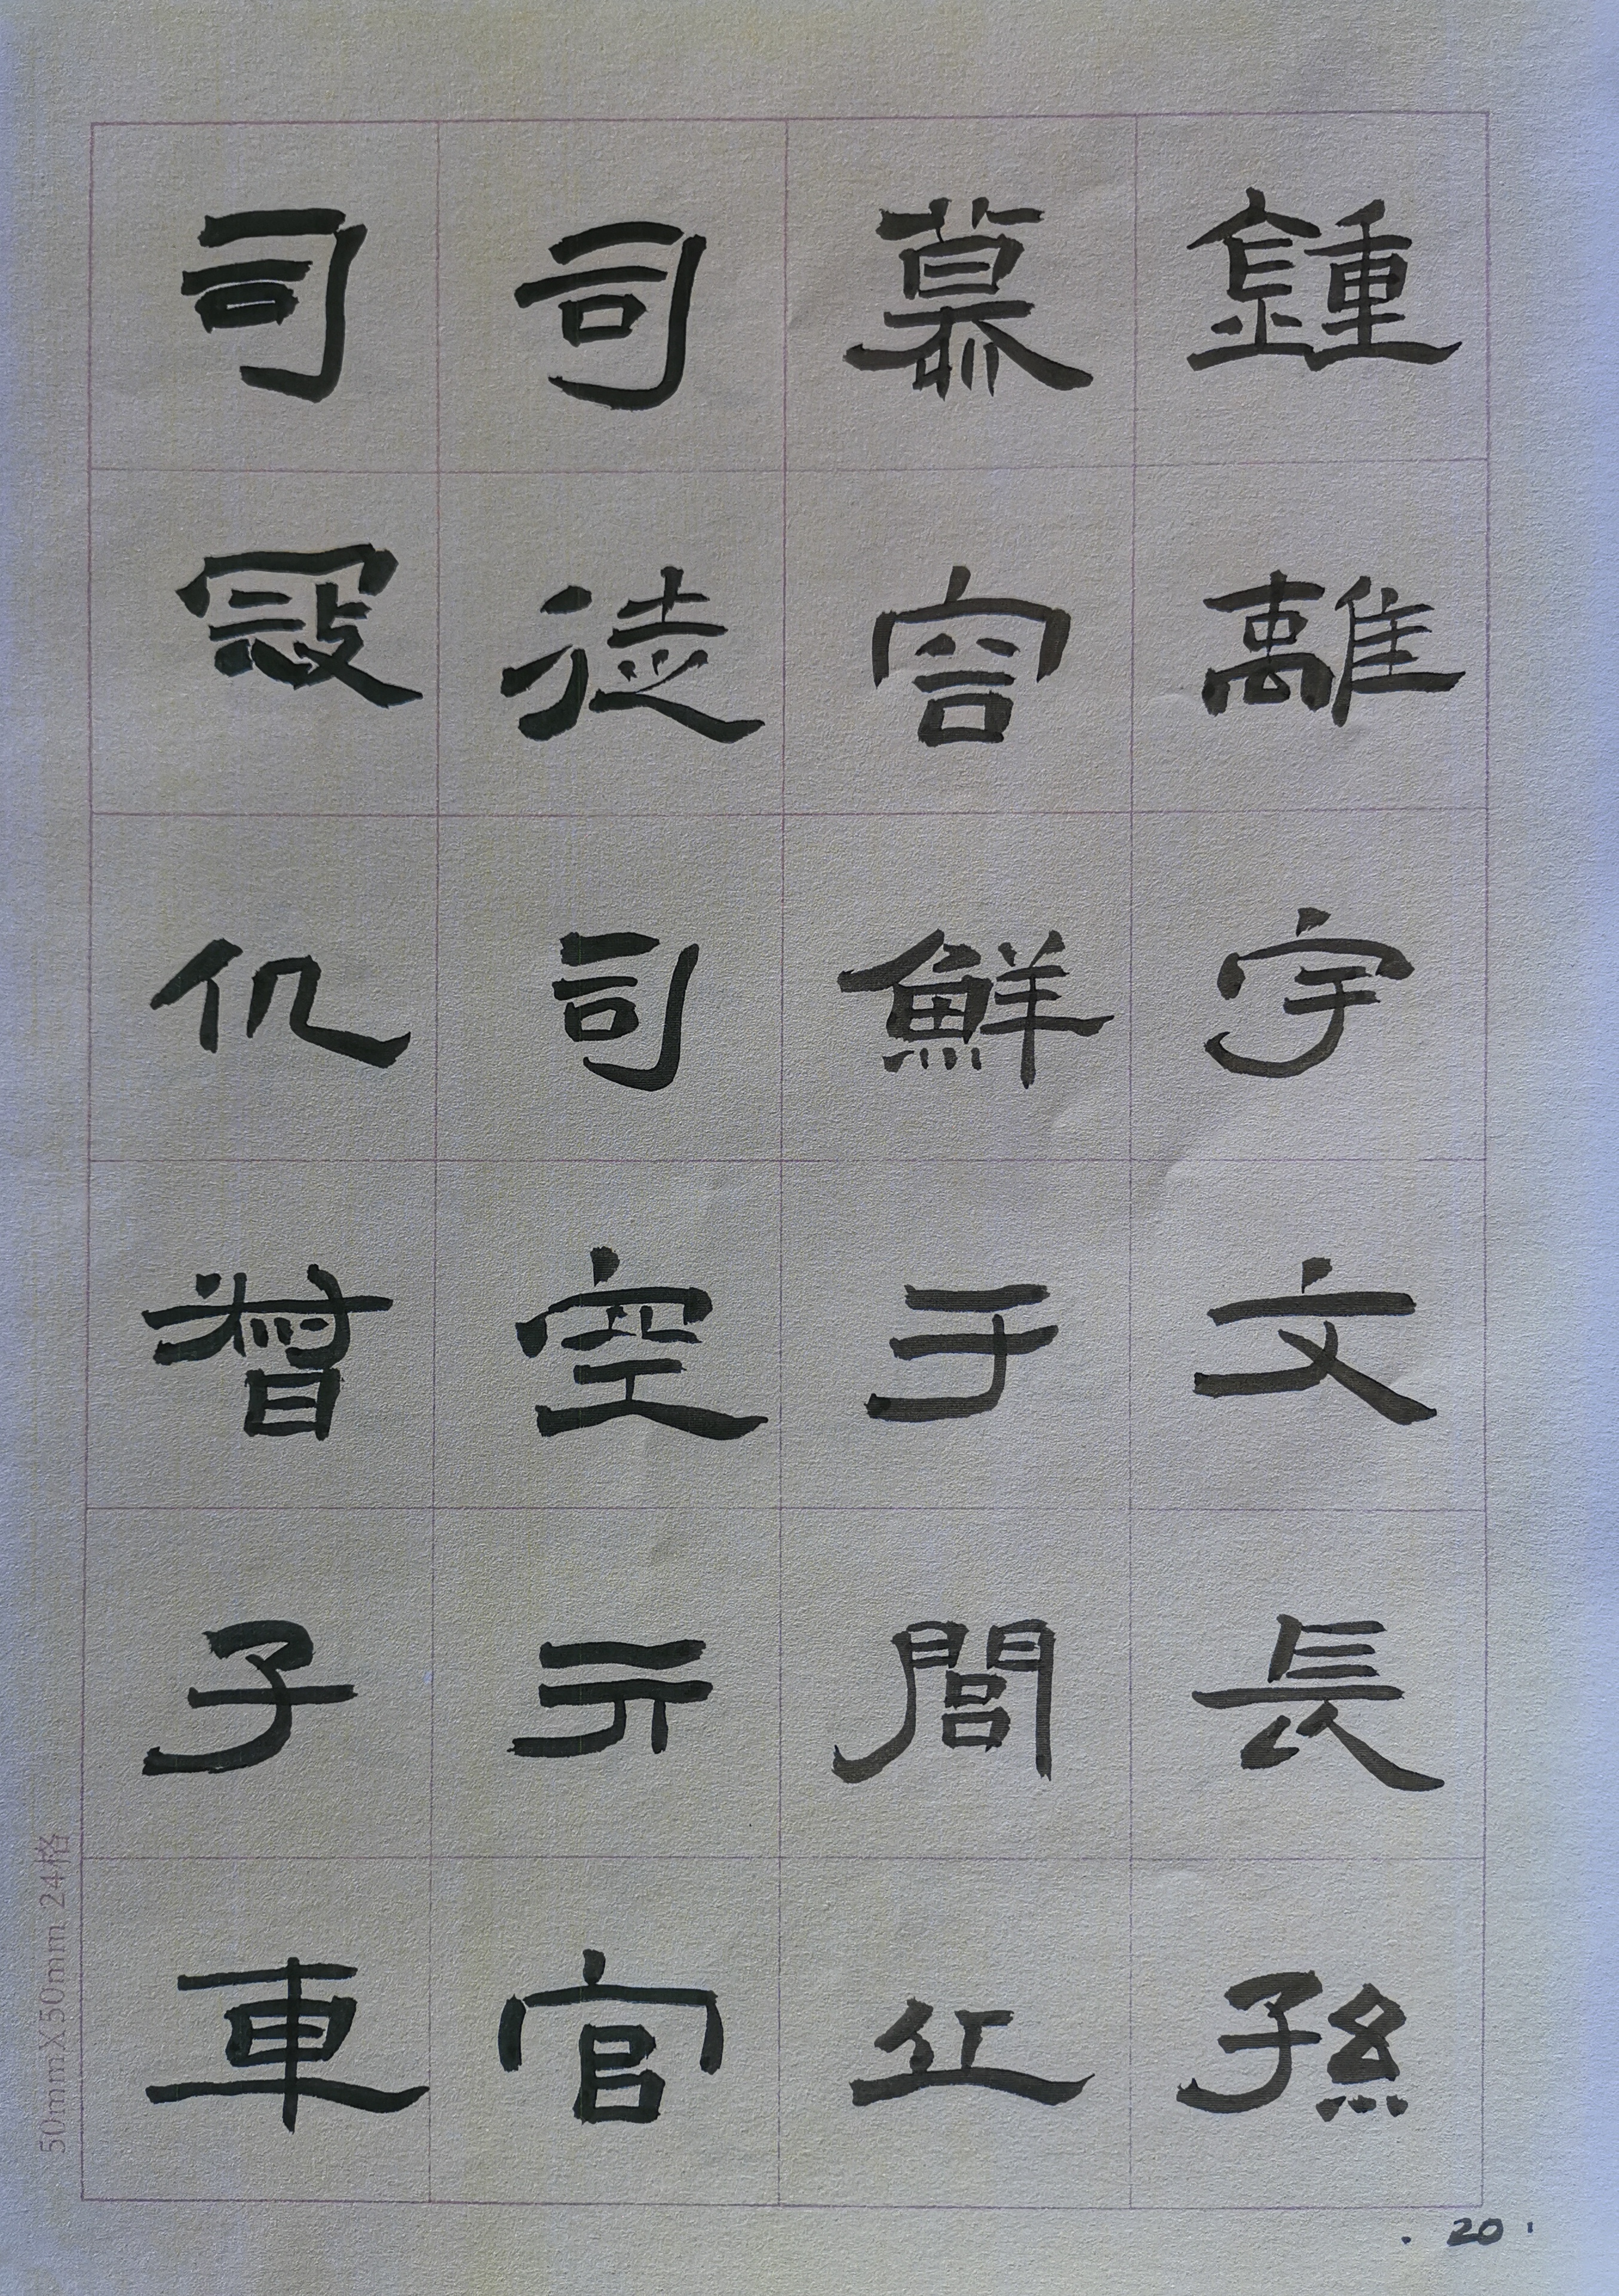 鍾離宇文長孫
慕容鮮于閭丘
司徒司空亓官
司寇仉督子車
50mmX50mm 24格
·20·